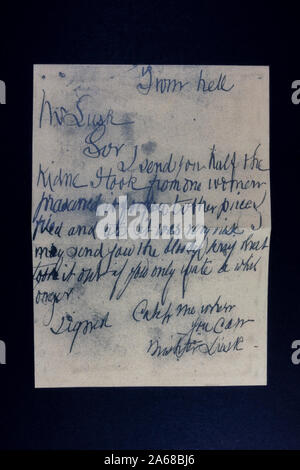 From hell
Mr Lusk
Sor
I send you half the
Kidne I took from one women
prasarved it for you tother piece I
fried and ate it was very nise I
may send you the bloody knif that
took it out if you only wate a whil
longer
signed
Catch me when
you can
Mishter Lusk
alamy
www.alamy.com
2A68BJ6